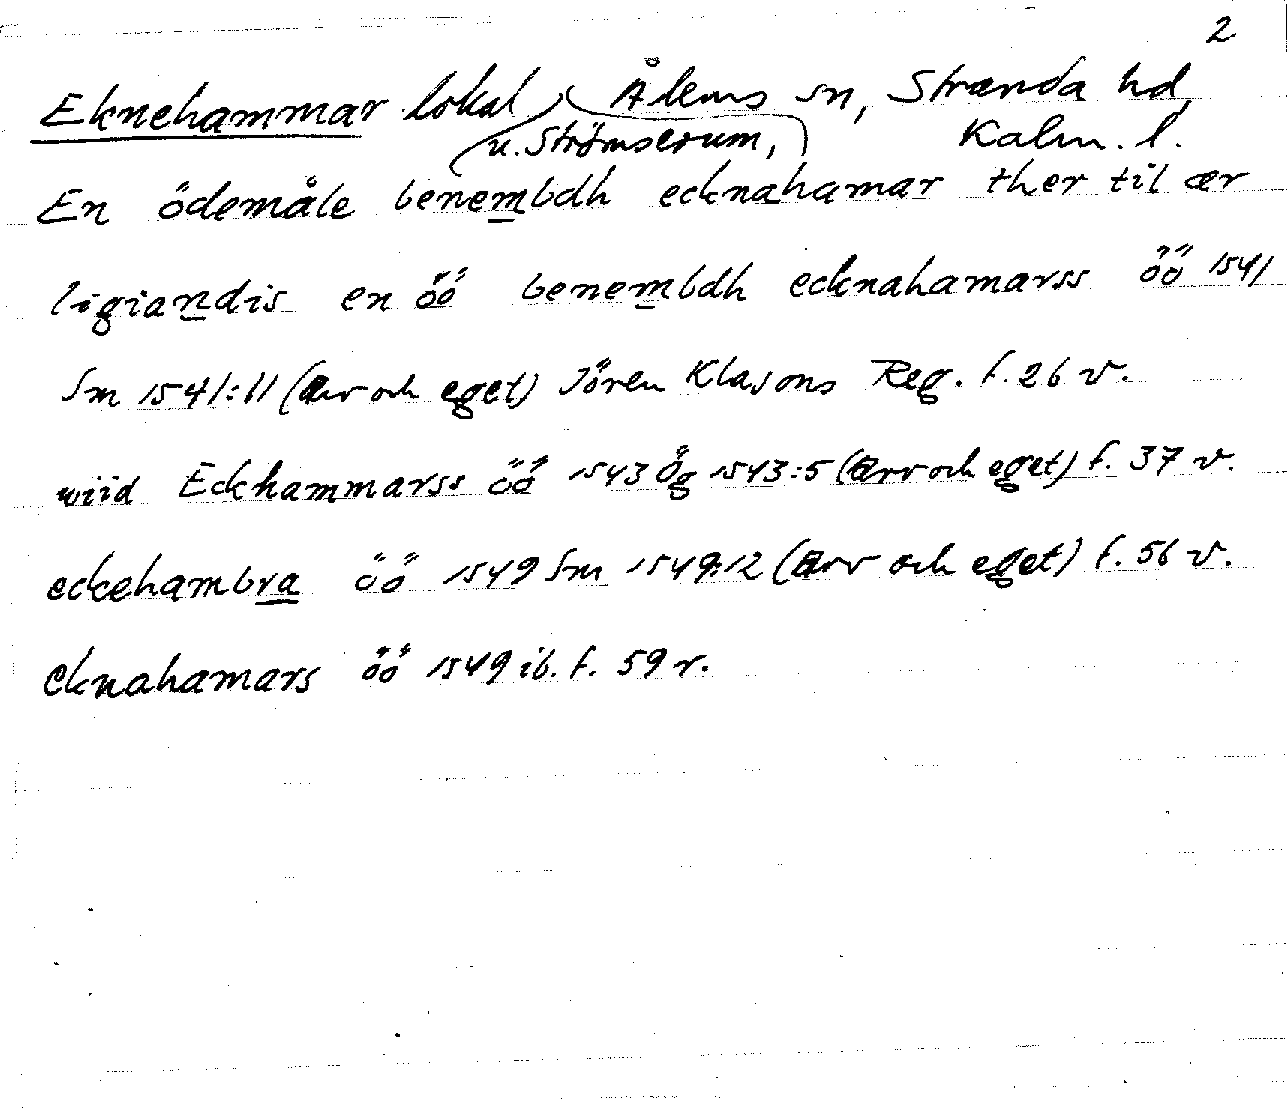 2
Eknehammar lokal Ålems sn, Stranda hd,
u. Strömserum, Kalm. l.
En ödemåle benembdh ecknahamar ther til ær
ligiandis en öö benembdh ecknahamarss öö 1541
Sm 1541:11 (Arv och eget) Jören Klasons Reg. f. 26 v.
wiid Eckhammarss öö 1543 Ög 1543:5 (Arv och eget) f. 37 v.
eckehambra öö 1549 Sm 1549:12 (Arv och eget) f. 56 v.
eknahamars öö 1549 ib. f. 59 r.